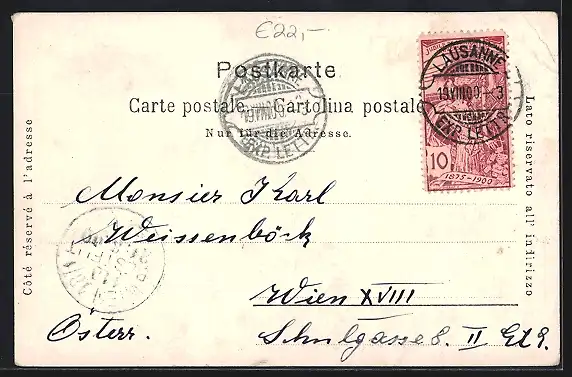 €22,-
Postkarte
Carte postale. Cartolina postale
Nur für die Adresse.
Côté réservé à l'adresse
Lato riservato all' indirizzo
LAUSANNE
EXP. LETTR.
10
1875-1900
LAUSANNE
EXP. LETTR.
WIEN
Monsier Karl
Weissenböck
Wien XVIII
Österr. Schulgasse 8. II